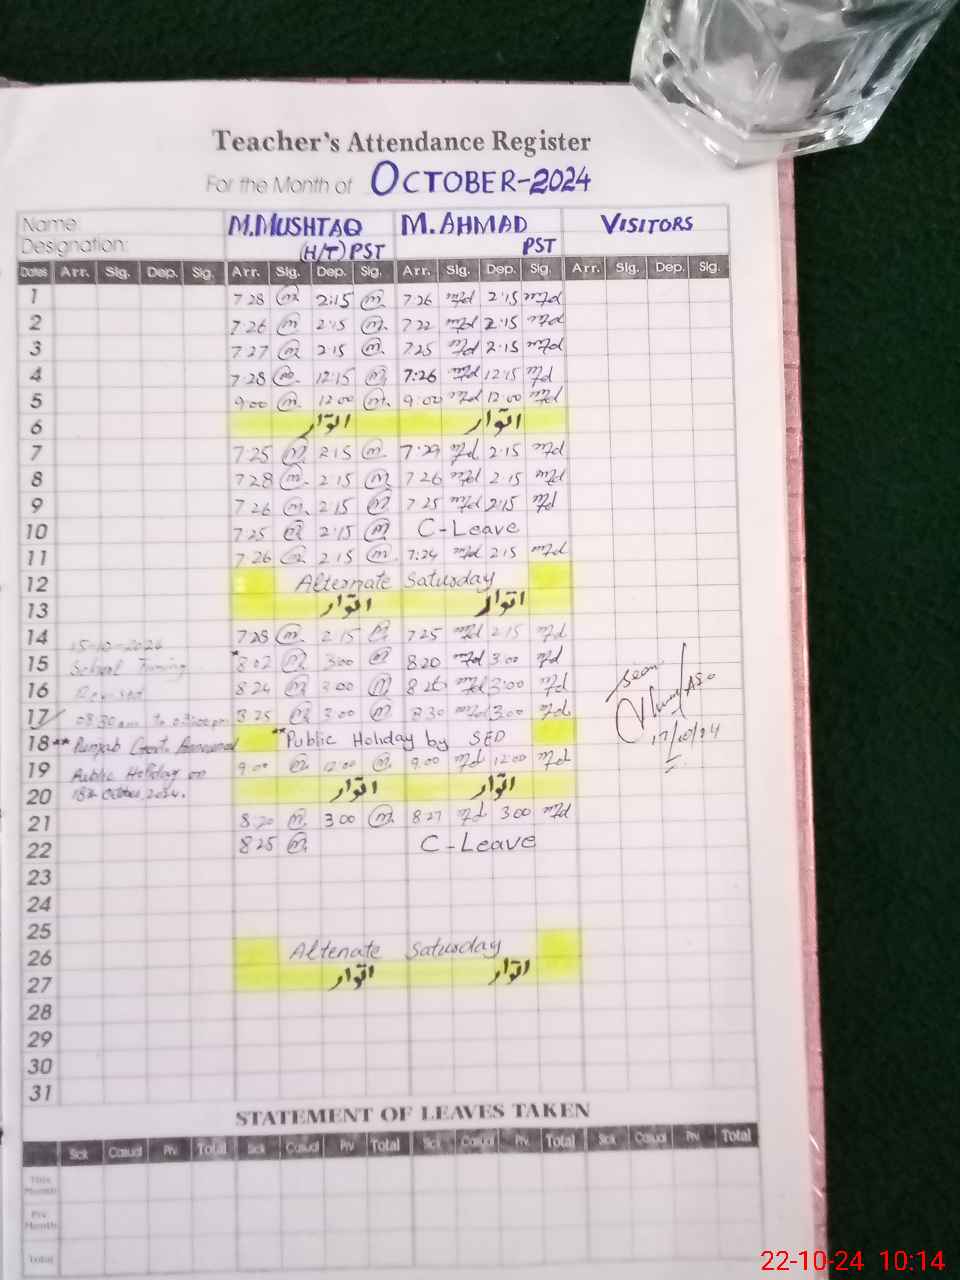 Teacher's Attendance Register
For the Month of OCTOBER-2024
Name: M.MUSHTAQ M.AHMAD VISITORS
Designation: (H/T) PST PST
Dates Arr. Sig. Dep. Sig. Arr. Sig. Dep. Sig. Arr. Sig. Dep. Sig. Arr. Sig. Dep. Sig.
1 7 28 2:15 7:26 2:15
2 7:26 2:15 7 22 2:15
3 7:27 2:15 7 25 2:15
4 7:28 12:15 7:26 12:15
5 9:00 12 00 9:00 12:00
6 اتوار اتوار
7 7:25 2:15 7:29 2:15
8 7:28 2 15 7 26 2 15
9 7 26 2:15 7 25 2:15
10 7:25 2:15 C-Leave
11 7:26 2:15 7:24 2:15
12 Alternate Saturday
13 اتوار اتوار
14 7:28 2 15 7 25 2:15
15-10-2024
15 School Timing * 8:02 3:00 8:20 3:00
16 Revised 8 24 3 00 3:00
17 08:30 am to 03:00pm 8 25 3:00 8 30 3:00
18 ** Punjab Govt. Announced ** Public Holiday by SED
19 Public Holiday on 9:00 12:00 9:00 12:00
18th October, 2024.
20 اتوار اتوار
21 8:20 3 00 8 27 3 00
22 8 25 C-Leave
23
24
25
26 Altenate Saturday
27 اتوار اتوار
28
29
30
31
Seen
17/10/24
STATEMENT OF LEAVES TAKEN
Sick Casual Prv. Total Sick Casual Prv. Total Sick Casual Prv. Total Sick Casual Prv. Total
This Month
Prv. Month
Total
22-10-24 10:14